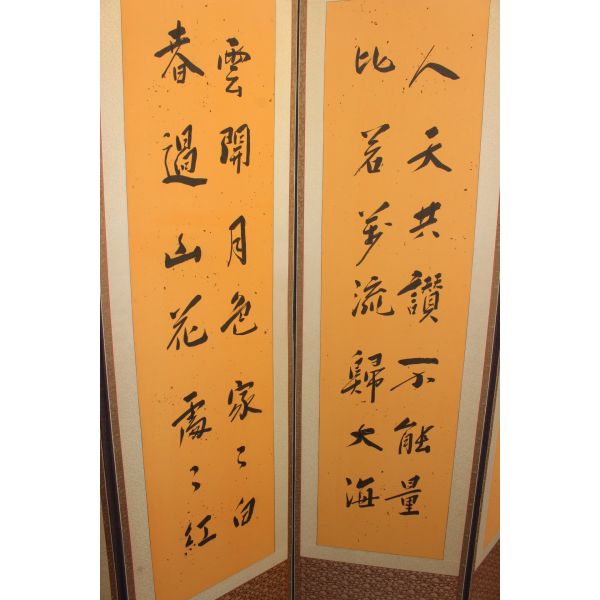 人天共讚不能量
比若萬流歸大海
雲開月色家〻白
春過山花處〻紅